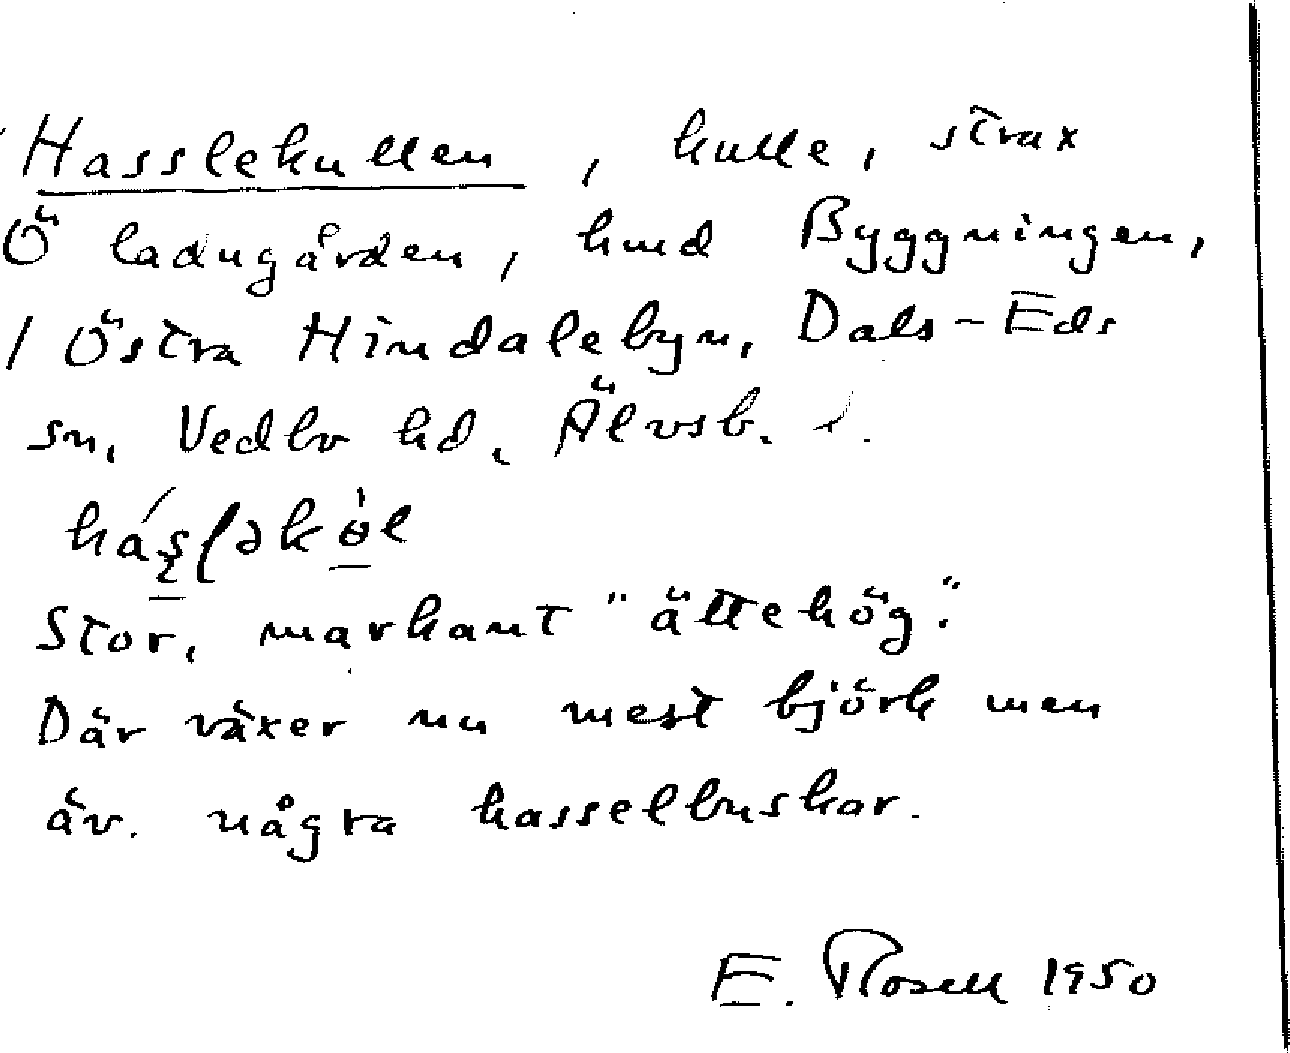 Hasslekullen, kulle, strax
Ö ladugården, hmd Byggningen,
/ Östra Hindalebyn, Dals-Eds
sn, Vedbo hd, Älvsb. l.
Stor, markant "ättehög".
Där växer nu mest björk men
äv. några hasselbuskar.
E. Rosell 1950